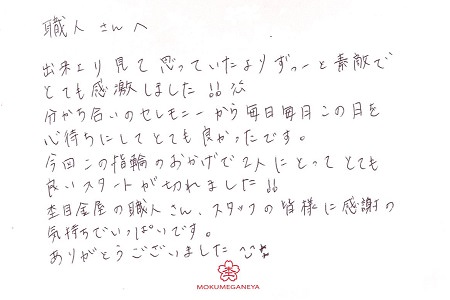 職人さんへ
出来上り見て思っていたよりずっーと素敵で
とても感激しました!!
分かち合いのセレモニーから毎日毎日この日を
心待ちにしてとても良かったです。
今回この指輪のおかげで2人にとってとても
良いスタートが切れました!!
杢目金屋の職人さん、スタッフの皆様に感謝の
気持ちでいっぱいです。
ありがとうございました
MOKUMEGANEYA